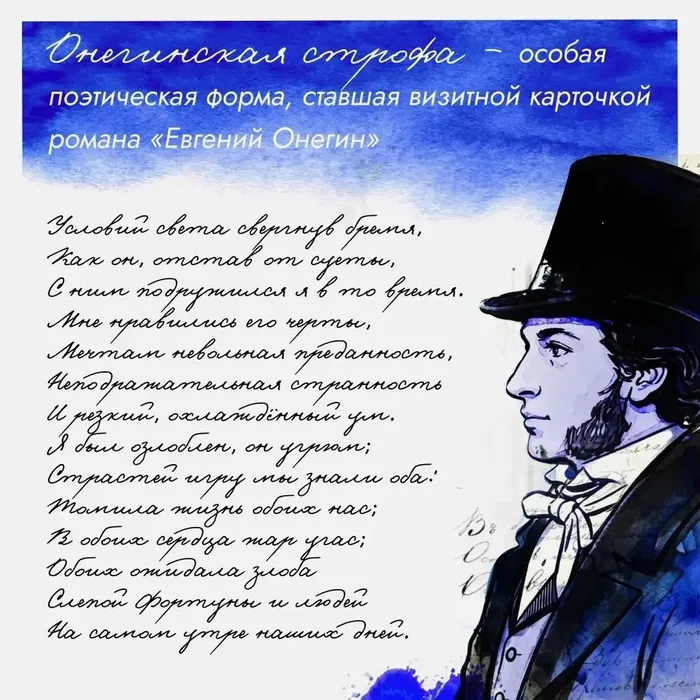 Онегинская строфа – особая
поэтическая форма, ставшая визитной карточкой
романа «Евгений Онегин»
Условий света свергнув бремя,
Как он, отстав от суеты,
С ним подружился я в то время.
Мне нравились его черты,
Мечтам невольная преданность,
Неподражательная странность
И резкий, охлаждённый ум.
Я был озлоблен, он угрюм;
Страстей игру мы знали оба:
Томила жизнь обоих нас;
В обоих сердца жар угас;
Обоих ожидала злоба
Слепой Фортуны и людей
На самом утре наших дней.